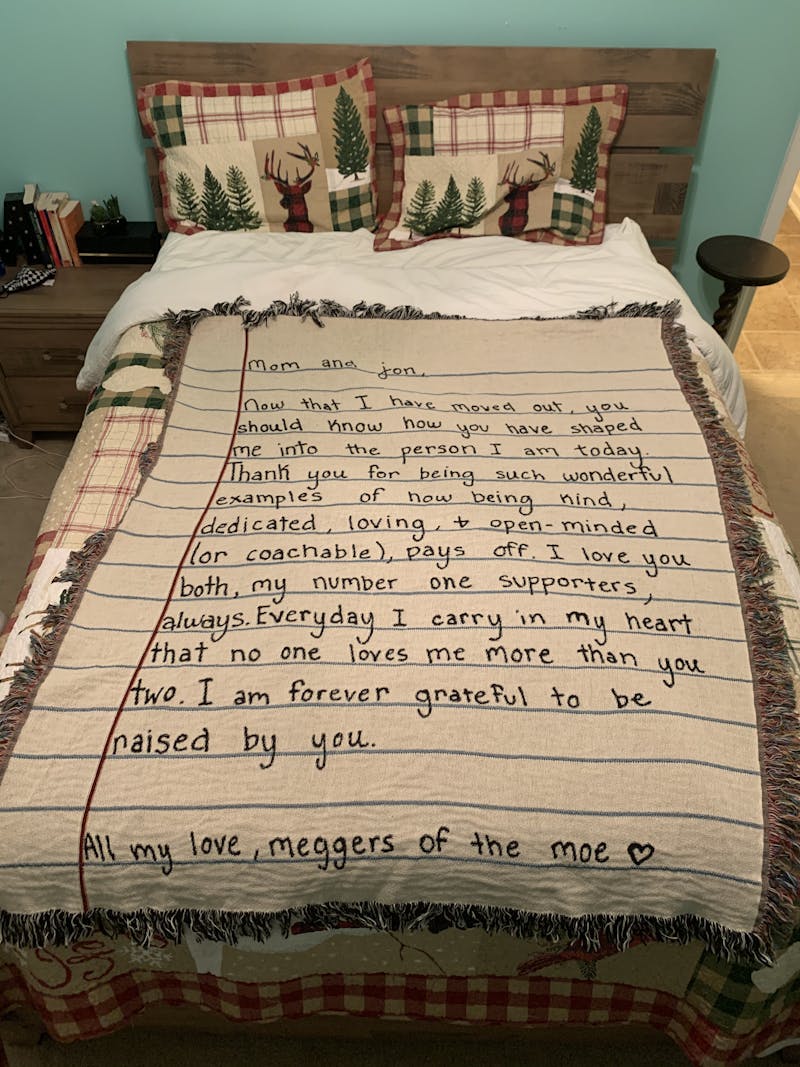 Mom and jon,
Now that I have moved out, you
should know how you have shaped
me into the person I am today.
Thank you for being such wonderful
examples of how being kind,
dedicated, loving, + open-minded
(or coachable), pays off. I love you
both, my number one supporters,
always. Everyday I carry in my heart
that no one loves me more than you
two. I am forever grateful to be
raised by you.
All my love, meggers of the moe ♡